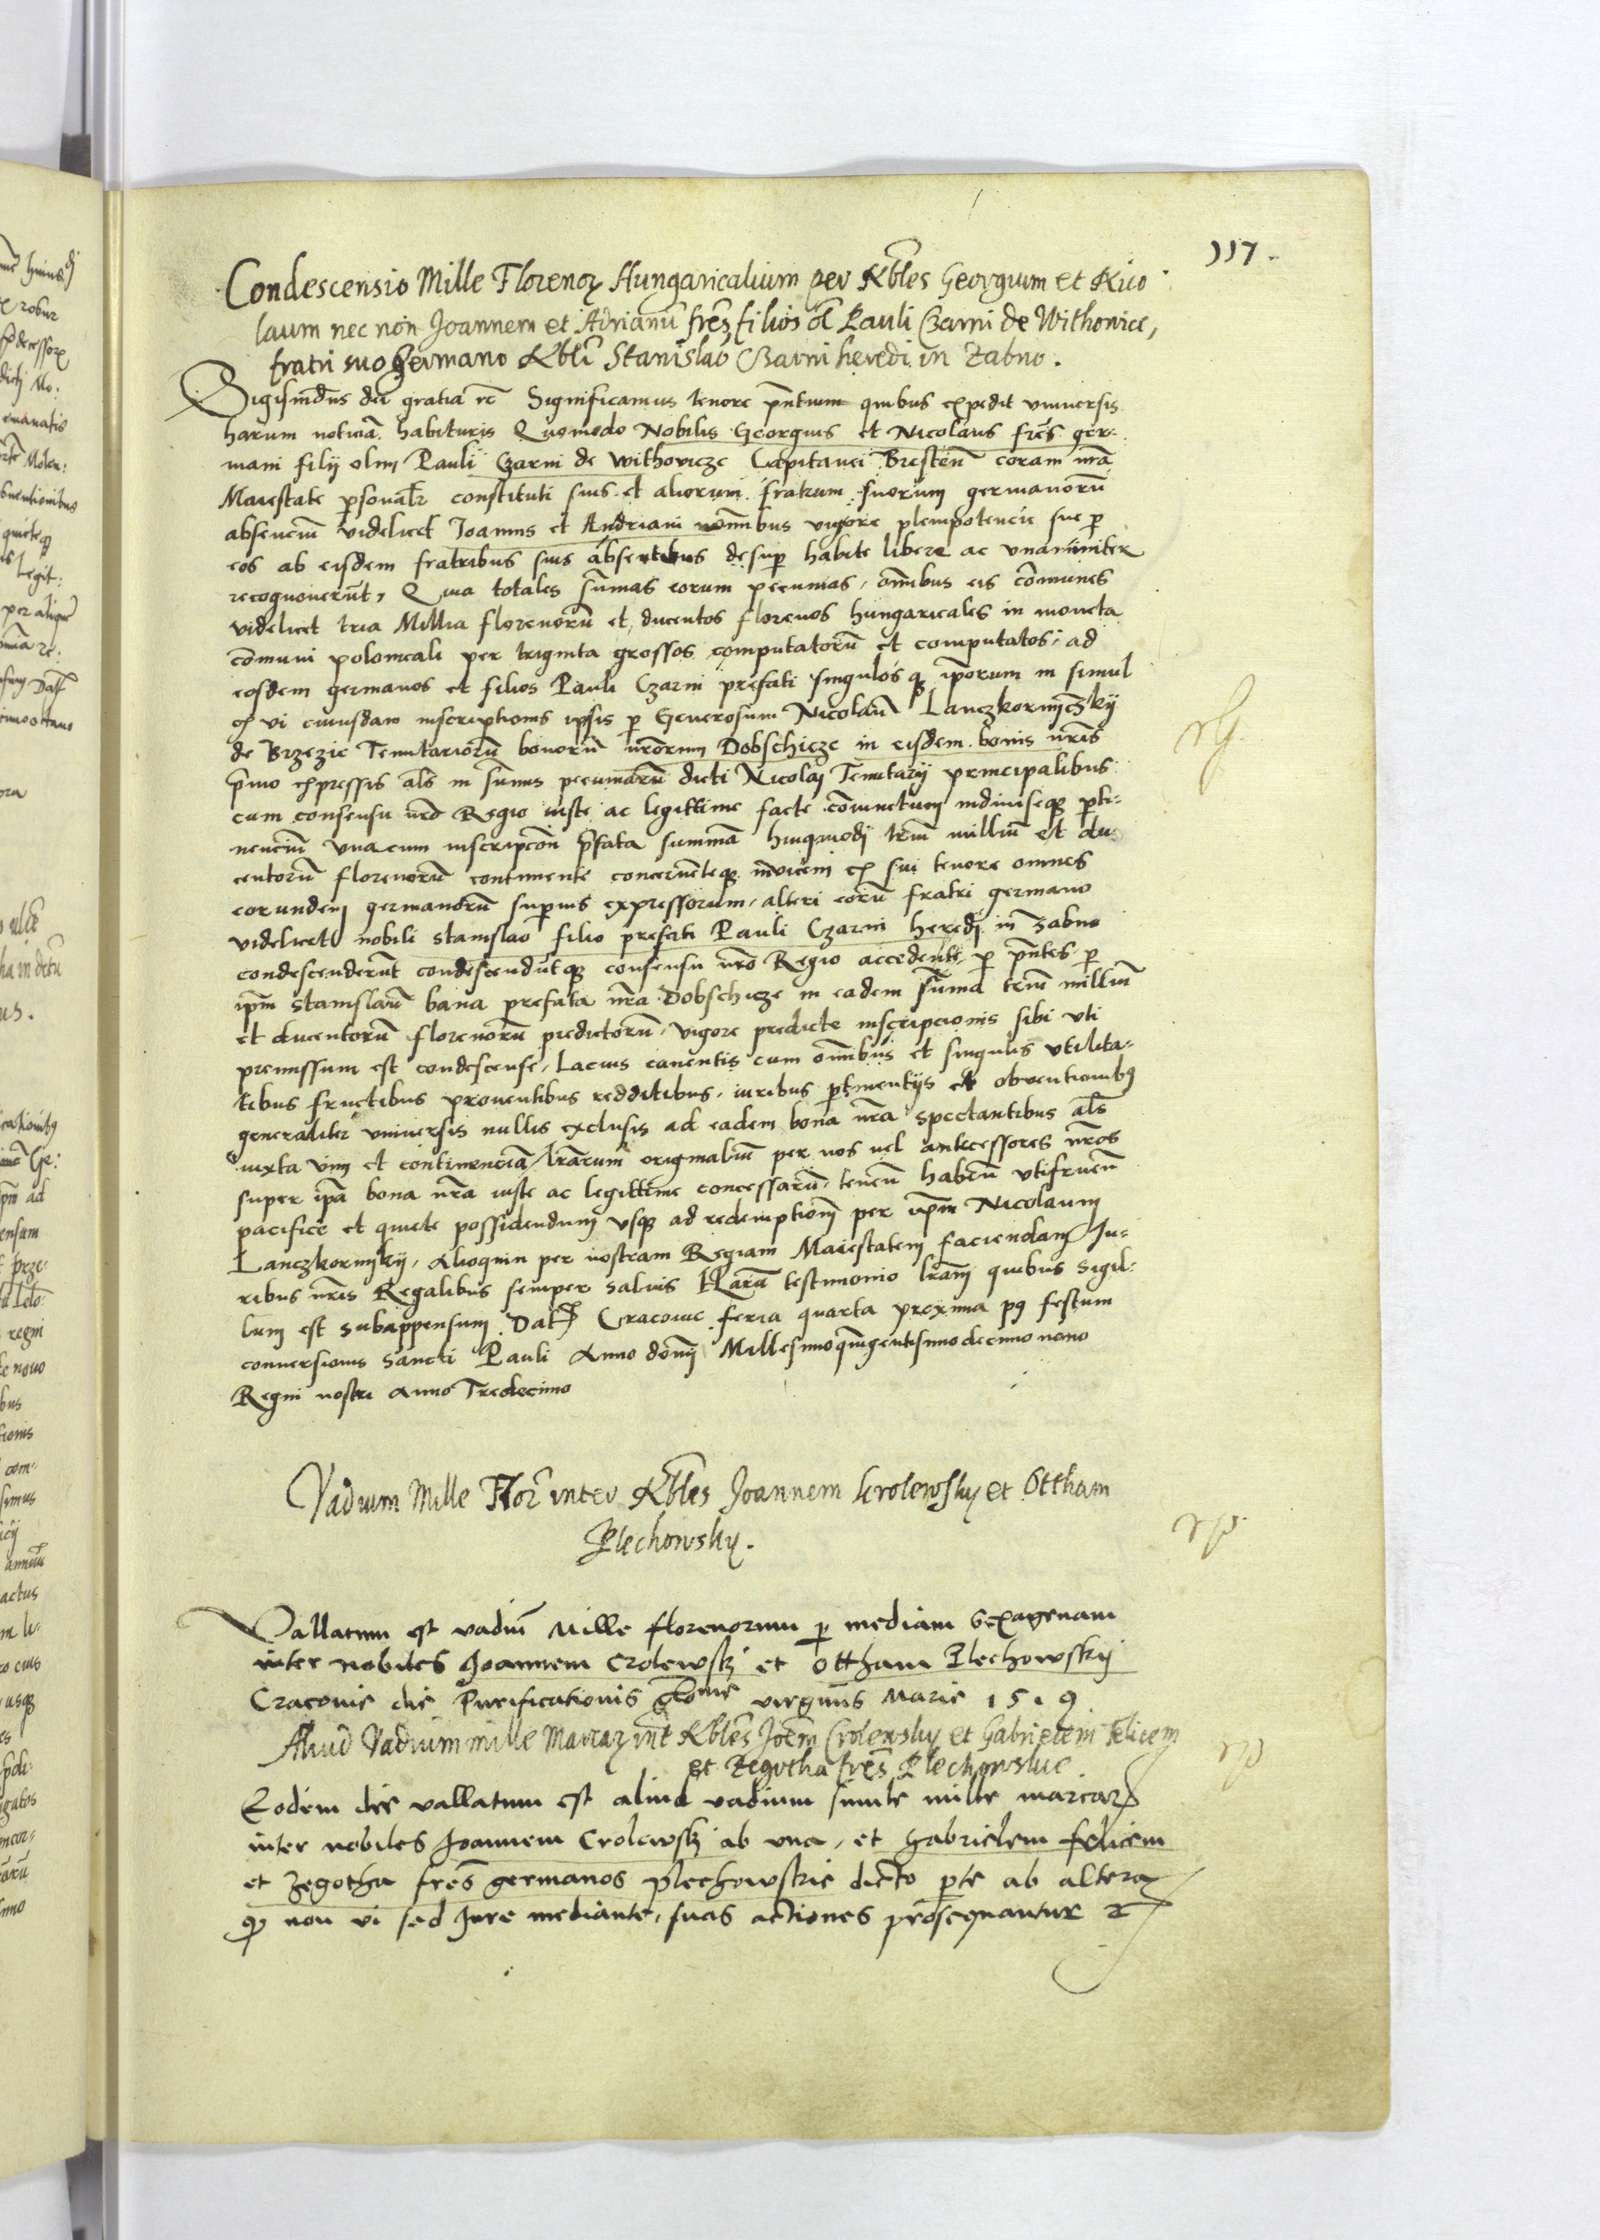 117.
Condescensio Mille Florenoꝝ Hungaricalium per Nobles Georgium et Nico
laum nec non Joannem et Adrianū fres filios ol Pauli Czarni de Withowice,
fratri suo germano Nobli Stanislao Czarni heredi in Zabno.
Sigismūdus dei gratia rc Significamus tenore pñtium quibus expedit vniversis
harum noticiā habituris Quomodo Nobilis Georgius et Nicolaus frēs ger-
mani filij olim Pauli Czarni de Withovicze Capitanei Bresten̄ coram nrā
Maiestate personalr constituti suis et aliorum fratrum suorum germanorū
absenciū videlicet Joannis et Andriani noībus vigore plenipotencie sue p
eos ab eisdem fratribus suis absentibus desup habite libere ac vnanimiter
recognoverūt, Quia totales sūmas eorum pecunias, omībus eis cōmunes
videlicet tria Millia florenorū et ducentos florenos hungaricales in moneta
cōmuni polonicali per triginta grossos computatorū et computatos, ad
eosdem germanos et filios Pauli Czarni prefati singulosqꝫ ip̄orum in simul
ex vi cuiusdam inscriptionis ipsis p Generosum Nicolaū Lanczkorunczkij
de Brzezie Tenutariorū bonorū nrōrum Dobschicze in eisdem bonis nrīs
primo expressis als in sūmis pecuniarū dicti Nicolaj Tenutarij principalibus
cum consensu nrō Regio iuste ac legittime facte cōiunctum indiviseqꝫ pti-
nenciū vna cum inscripcōn̄ pfata summā huiqmodj triū milliū et du
centorū florenorū continente concernēteqꝫ invicem ex sui tenore omnes
eorundem germanorū supius expressorum, alteri eorū fratri germano
videlicet nobili Stanislao filio prefati Pauli Czarni heredj in Zabno
condescenderūt condescendūtqꝫ consensu nrō Regio accedente, p pñtes p
ipm̄ Stanislaū bona prefata nrā Dobschicze in eadem sūma triū milliū
et ducentorū florenorū predictorū, vigore predicte inscripcionis sibi vti
premissum est condescense, Lacius canentis cum omībus et singulis vtilita-
tibus fructibus proventibus redditibus, iuribus ptinentijs et obventionibꝫ
generaliter vniversis nullis exclusis ad eadem bona nrā spectantibus als
iuxta vim et continenciā lrārum originaliū per nos vel antecessores nrōs
super ip̄a bona nrā iuste ac legittime concessarū, tenen̄ haben̄ vtifruen̄
pacifice et quiete possidendum vsqꝫ ad redemptionē per ipm̄ Nicolaum
Lanczkorunskij, Alioquin per nostram Regiam Maiestatem faciendam Iu-
ribus nrīs Regalibus semper salvis Harū testimonio lrārū quibus sigil-
lum est subappensum. Dat Cracovie feria quarta proxima pꝯ festum
conversionis Sancti Pauli Anno domī Millesimoquingentesimodecimonono
Regni nostri Anno Tredecimo
Vadium Mille Flor inter Nobles Joannem Krolewsky et Ottham
Plechowsky.
Vallatum est vadiū Mille florenorum p mediam Sexagenam
inter nobiles Joannem Crolewskj et Ottham Plechowskij
Cracovie die Purificationis glōme virginis Marie 1519
Aliud Vadium mille Marcaꝝ int Nobles Joēm Crolewsky et Gabrielem Felicem
et Zegotha frēs Plechowskie
Eodem die vallatum est aliud vadium simile mille marcarꝝ
inter nobiles Joannem Crolewskj ab vna, et Gabrielem felicem
et Zegotha frēs germanos Plechowskie dicto pte ab altera
qꝫ non vi sed Jure mediante, suas actiones prosequantur rc